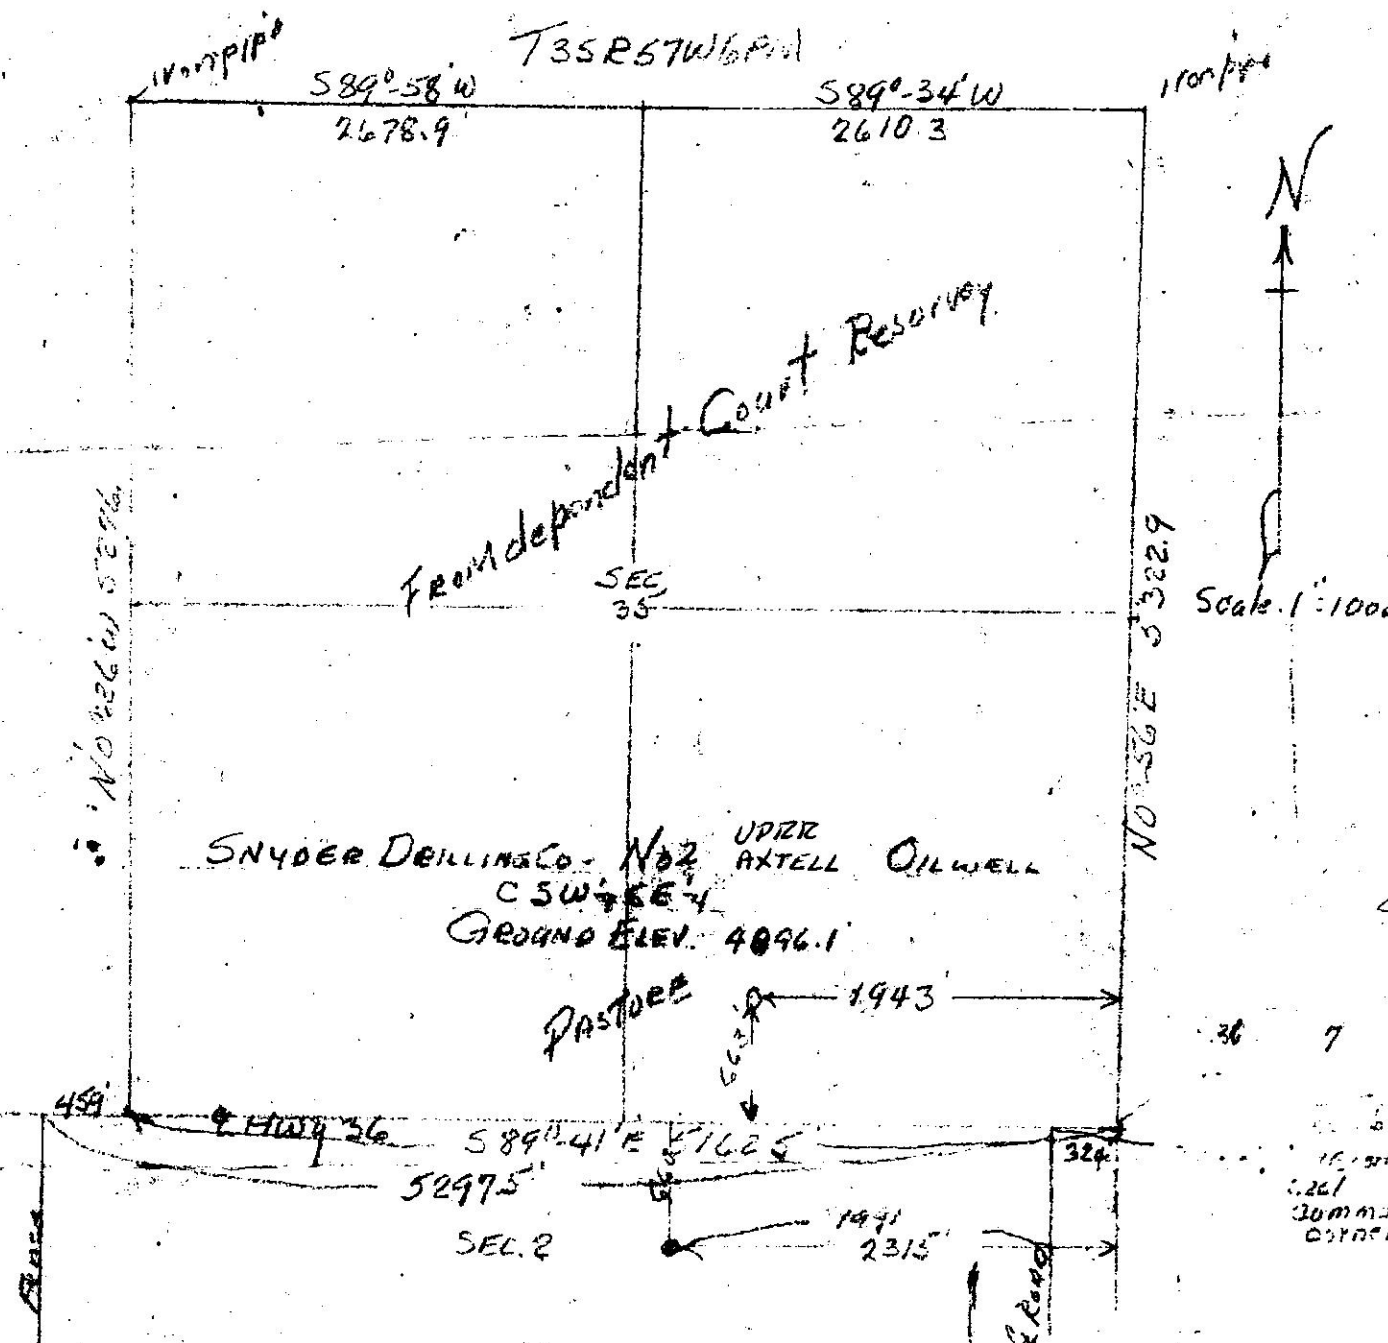 T3S R57W 6PM
Iron pipe
S89°-58'W
2678.9'
S89°-34'W
2610.3
Iron pipe
N
From dependent Court Resurvey
SEC
35
N0°-56'E 5322.9
Scale. 1":100
SNYDER DRILLING CO. No2 UPRR AXTELL OILWELL
C SW¼ SE¼
GROUND ELEV. 4896.1'
PASTURE
1943'
663'
36 7
459'
HWY 36
S89°-41'E 5162.5'
324'
5297.5'
SEC. 2
1991
2315'
Fence
Road